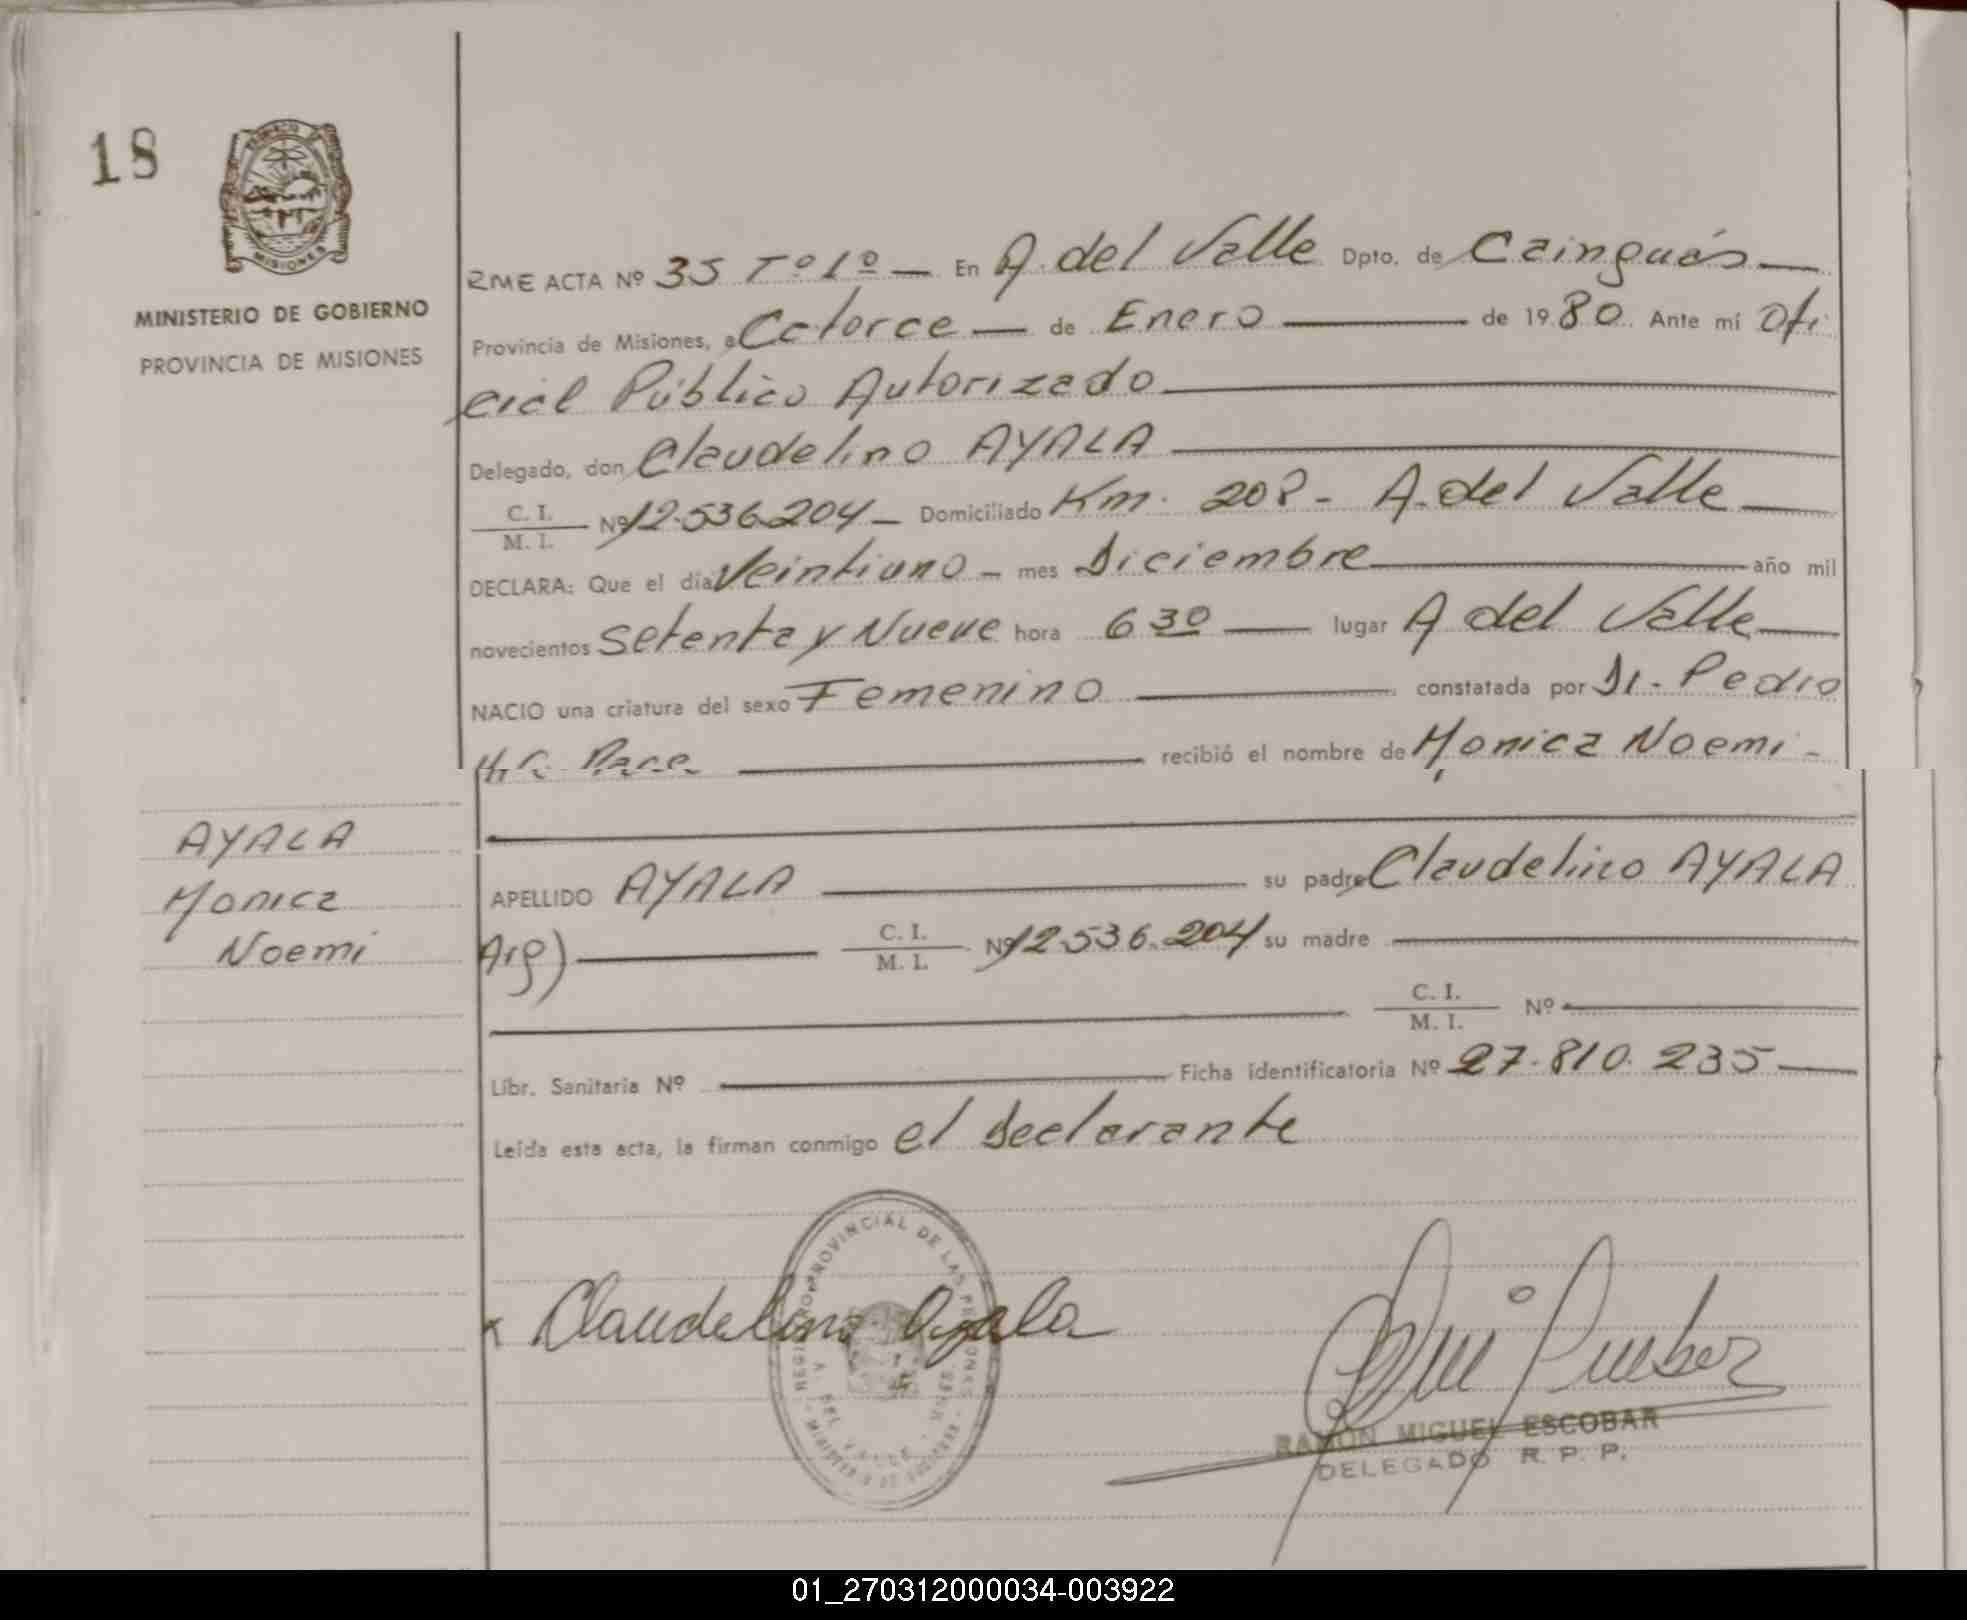 18
MINISTERIO DE GOBIERNO
PROVINCIA DE MISIONES
ACTA Nº 35 Tº 1º — En A. del Valle Dpto. de Cainguás —
Provincia de Misiones, a Catorce — de Enero — de 1980. Ante mí Ofi
cial Público Autorizado —
Delegado, don Claudelino AYALA —
C. I.
M. I. Nº 12.536.204 — Domiciliado Km. 208 - A. del Valle —
DECLARA: Que el día Veintiuno — mes Diciembre — año mil
novecientos Setenta y Nueve hora 6 30 — lugar A del Valle —
NACIO una criatura del sexo Femenino — constatada por Dr. Pedro
recibió el nombre de Monica Noemi -
AYALA
Monica
Noemi
APELLIDO AYALA — su padre Claudelino AYALA
Arg) — C. I.
M. I. Nº 12.536.204 su madre —
— C. I.
M. I. Nº —
Libr. Sanitaria Nº — Ficha identificatoria Nº 27.810.235 —
Leída esta acta, la firman conmigo el declarante
REGISTRO PROVINCIAL DE LAS PERSONAS
DEL VALLE
Claudelino Ayala
RAMÓN MIGUEL ESCOBAR
DELEGADO R. P. P.
01_270312000034-003922